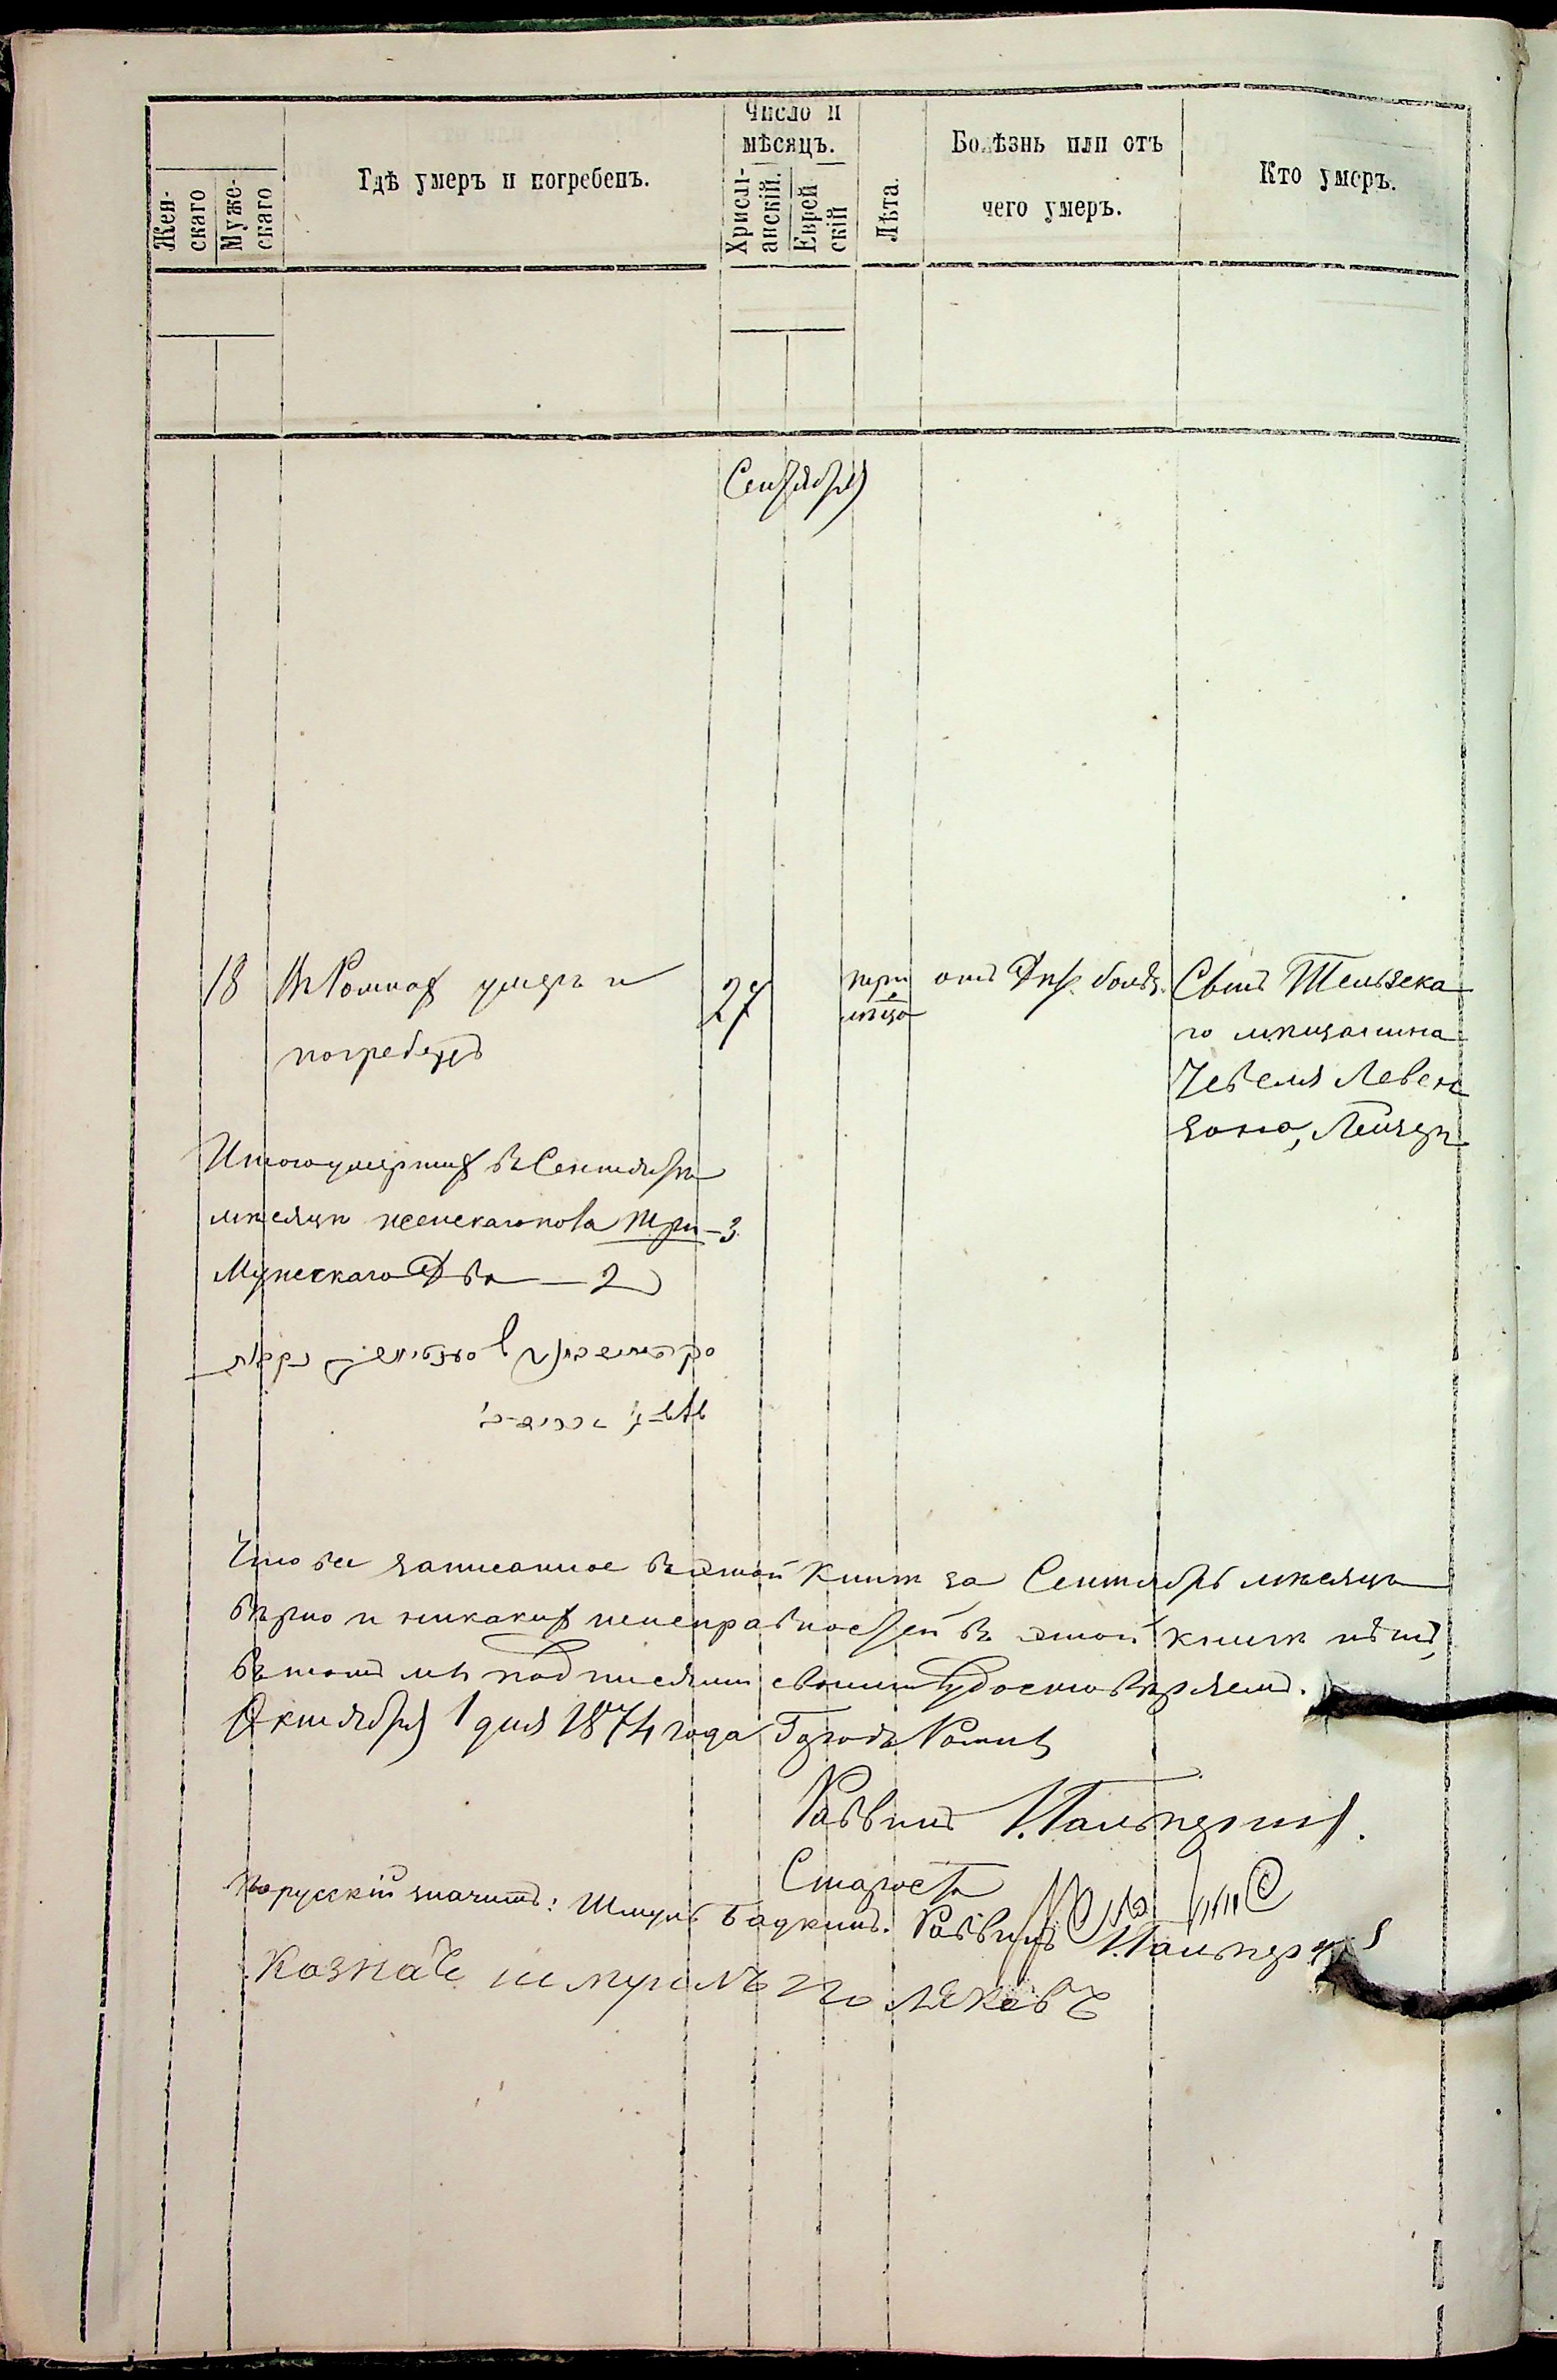 Жен-
скаго
Муже-
скаго
Гдѣ умеръ и погребенъ.
Число и
мѣсяцъ.
Христі-
анскій.
Еврей
скій
Лѣта.
Болѣзнь или отъ
чего умеръ.
Кто умеръ.
Сентября
18 Въ Ромнах умеръ и
погребенъ
27
три
мѣсяца
отъ болѣз.
Сынъ Тельзска
го мѣщанина
Левен
зона, Лейзеръ
Итого умерших въ Сентябрѣ
мѣсяцѣ женскаго пола три - 3
Мужескаго Два — 2
Что все записанное въ этой книгѣ за Сентябрь мѣсяцъ
вѣрно и никаких неисправностей въ этой книгѣ нѣтъ,
въ томъ мы подписями своими удостовѣряемъ.
Октября 1 дня 1874 года Городъ Ромны
Раввинъ И. Гальперинъ.
Староста
По русскій значитъ: Шмуль Баркинъ. Раввинъ И. Гальперинъ
Казначе шмуилъ поляковъ